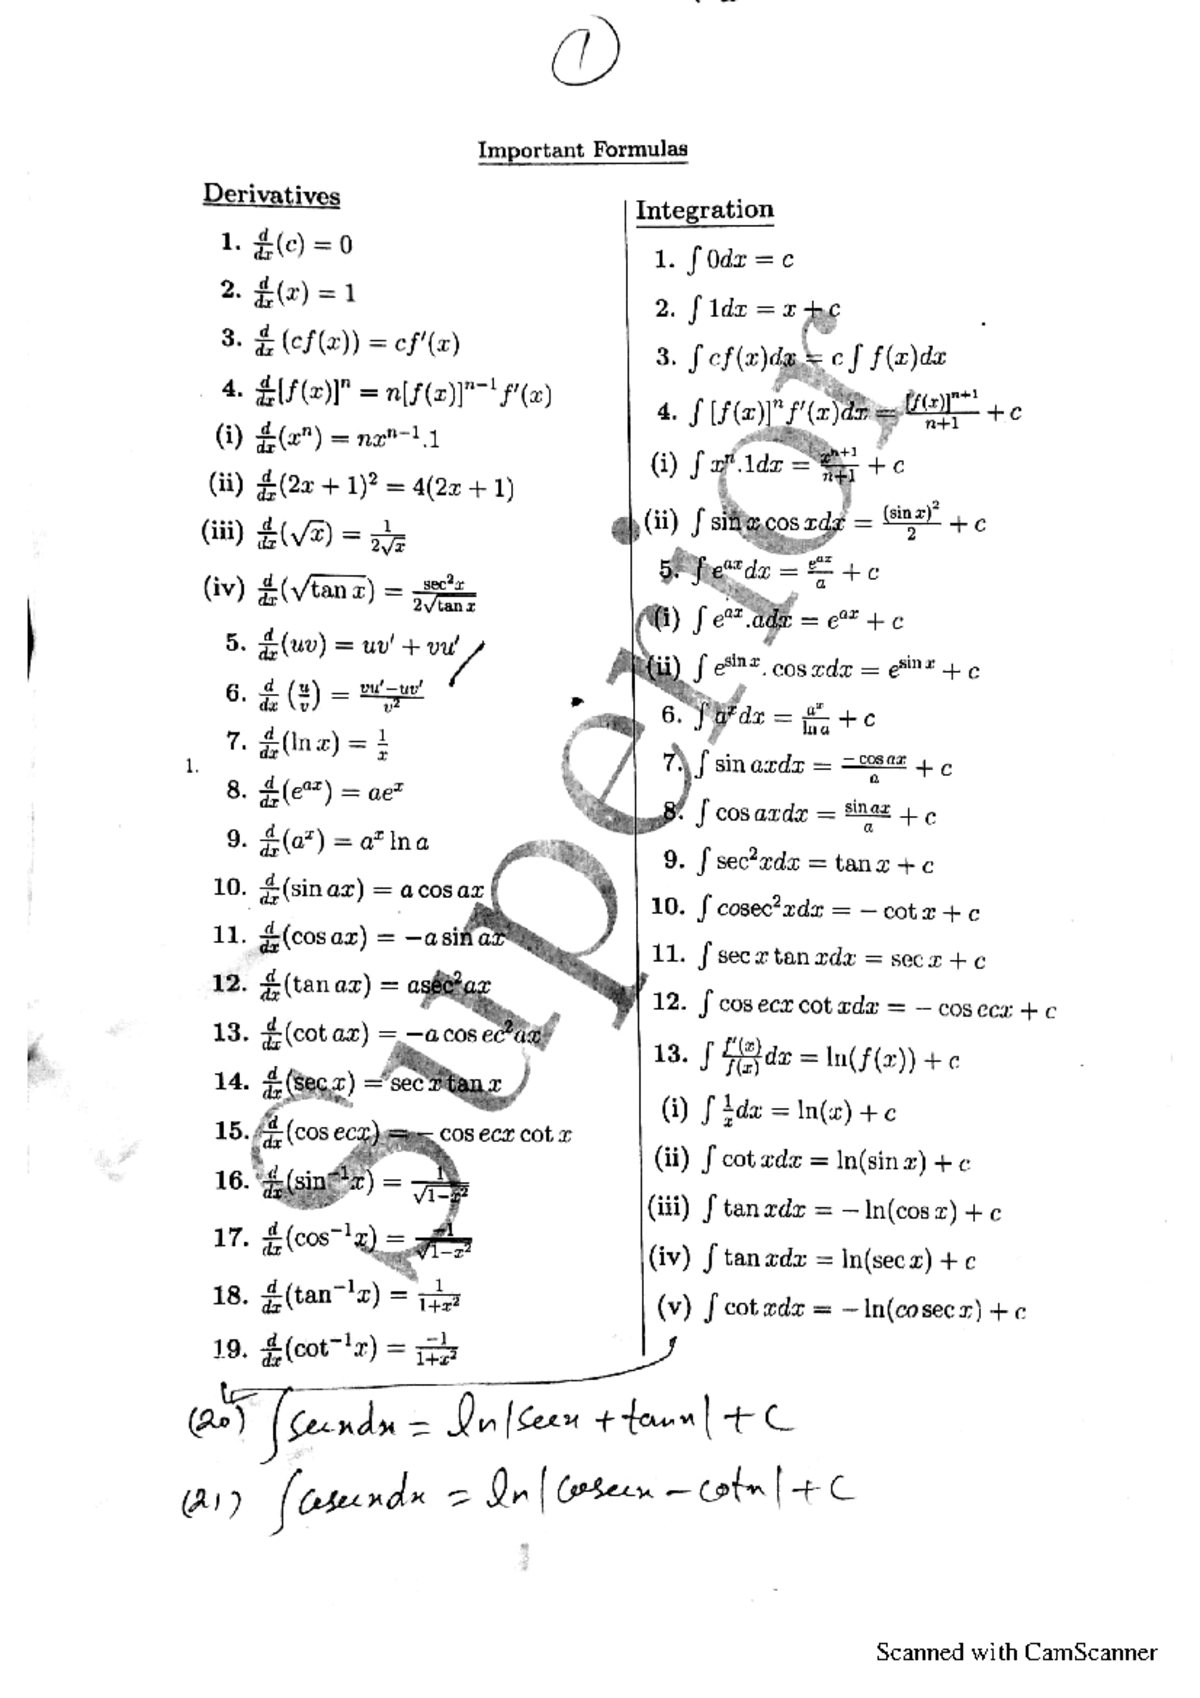 1
Important Formulas
Derivatives
1. d/dx(c) = 0
2. d/dx(x) = 1
3. d/dx (cf(x)) = cf′(x)
4. d/dx[f(x)]ⁿ = n[f(x)]ⁿ⁻¹f′(x)
(i) d/dx(xⁿ) = nxⁿ⁻¹.1
(ii) d/dx(2x + 1)² = 4(2x + 1)
(iii) d/dx(√x) = 1/2√x
(iv) d/dx(√tan x) = sec²x/2√tan x
5. d/dx(uv) = uv′ + vu′
6. d/dx (u/v) = vu′−uv′/v²
7. d/dx(ln x) = 1/x
1.
8. d/dx(e^ax) = ae^x
9. d/dx(a^x) = a^x ln a
10. d/dx(sin ax) = a cos ax
11. d/dx(cos ax) = −a sin ax
12. d/dx(tan ax) = asec²ax
13. d/dx(cot ax) = −a cos ec²ax
14. d/dx(sec x) = sec x tan x
15. d/dx(cos ecx) = − cos ecx cot x
16. d/dx(sin⁻¹x) = 1/√1−x²
17. d/dx(cos⁻¹x) = −1/√1−x²
18. d/dx(tan⁻¹x) = 1/1+x²
19. d/dx(cot⁻¹x) = −1/1+x²
Integration
1. ∫ 0dx = c
2. ∫ 1dx = x + c
3. ∫ cf(x)dx = c ∫ f(x)dx
4. ∫ [f(x)]ⁿf′(x)dx = [f(x)]ⁿ⁺¹/n+1 + c
(i) ∫ xⁿ.1dx = xⁿ⁺¹/n+1 + c
(ii) ∫ sin x cos xdx = (sin x)²/2 + c
5. ∫ e^ax dx = e^ax/a + c
(i) ∫ e^ax.adx = e^ax + c
(ii) ∫ e^sin x. cos xdx = e^sin x + c
6. ∫ a^x dx = a^x/ln a + c
7. ∫ sin axdx = − cos ax/a + c
8. ∫ cos axdx = sin ax/a + c
9. ∫ sec²xdx = tan x + c
10. ∫ cosec²xdx = − cot x + c
11. ∫ sec x tan xdx = sec x + c
12. ∫ cos ecx cot xdx = − cos ecx + c
13. ∫ f′(x)/f(x) dx = ln(f(x)) + c
(i) ∫ 1/x dx = ln(x) + c
(ii) ∫ cot xdx = ln(sin x) + c
(iii) ∫ tan xdx = − ln(cos x) + c
(iv) ∫ tan xdx = ln(sec x) + c
(v) ∫ cot xdx = − ln(cosec x) + c
(20) ∫ secxdx = ln|secx + tanx| + C
(21) ∫ cosecxdx = ln|cosecx − cotx| + C
Superior
Scanned with CamScanner